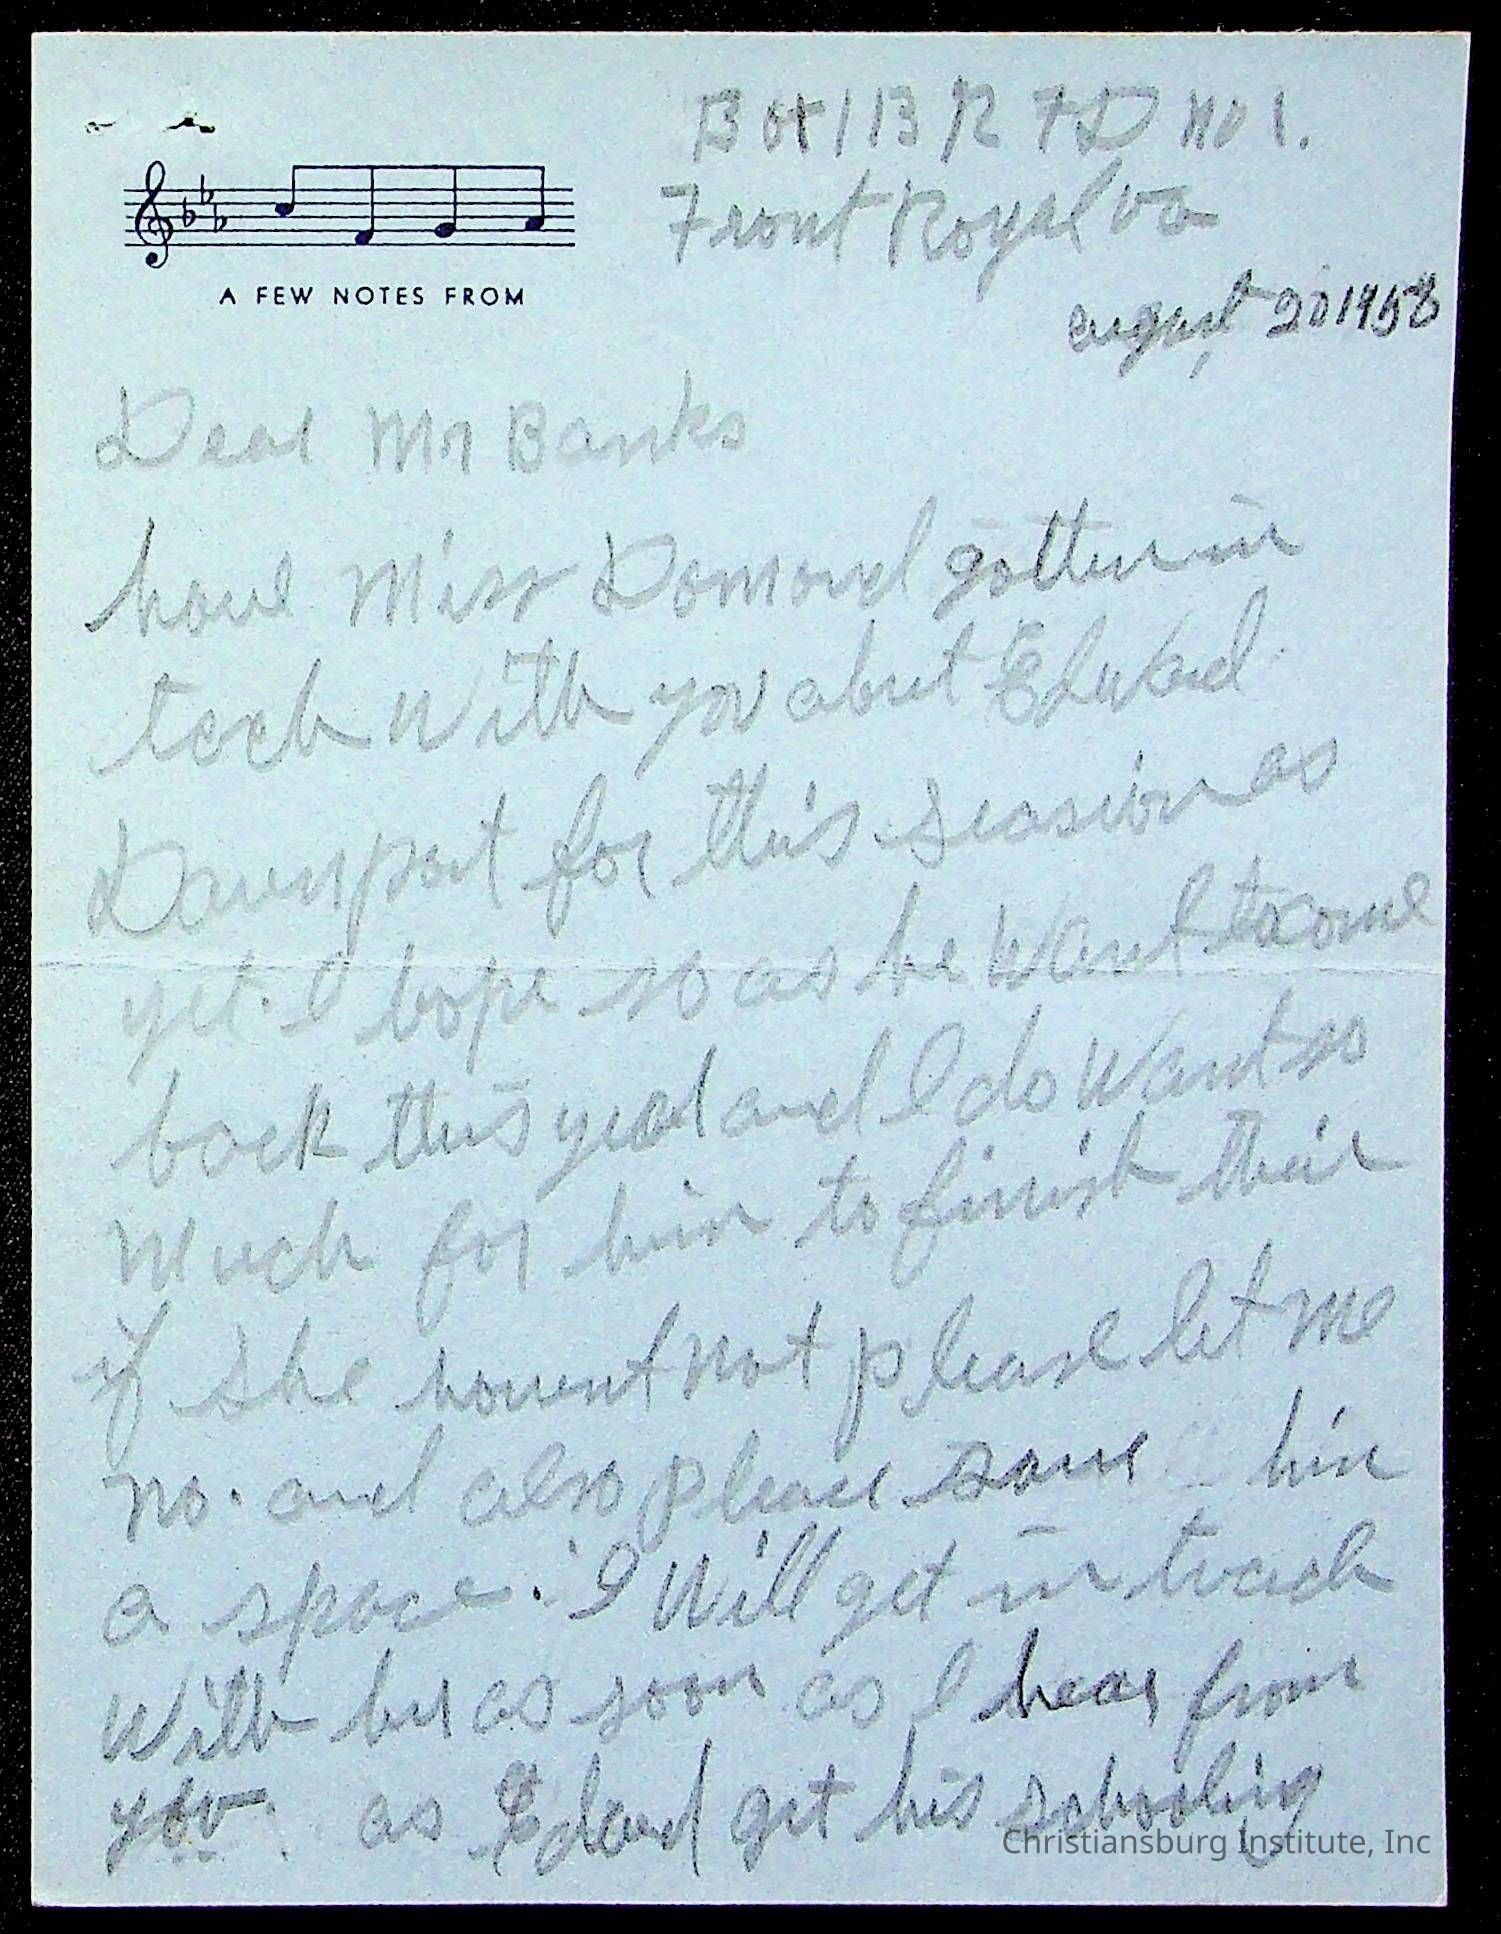 Box 113 R FD no 1.
Front Royal va
A FEW NOTES FROM
august 20 1958
Dear Mr Banks
have Miss Domond gotten in
toch with you about Edward
Davenport for this seasion as
yet. I hope so as he want to come
back this year and I do want so
much for him to finish their
if she havent not please let me
no. and also please save him
a space. I will get in touch
with her as soon as I hear from
you. as Edward get his schooling
Christiansburg Institute, Inc